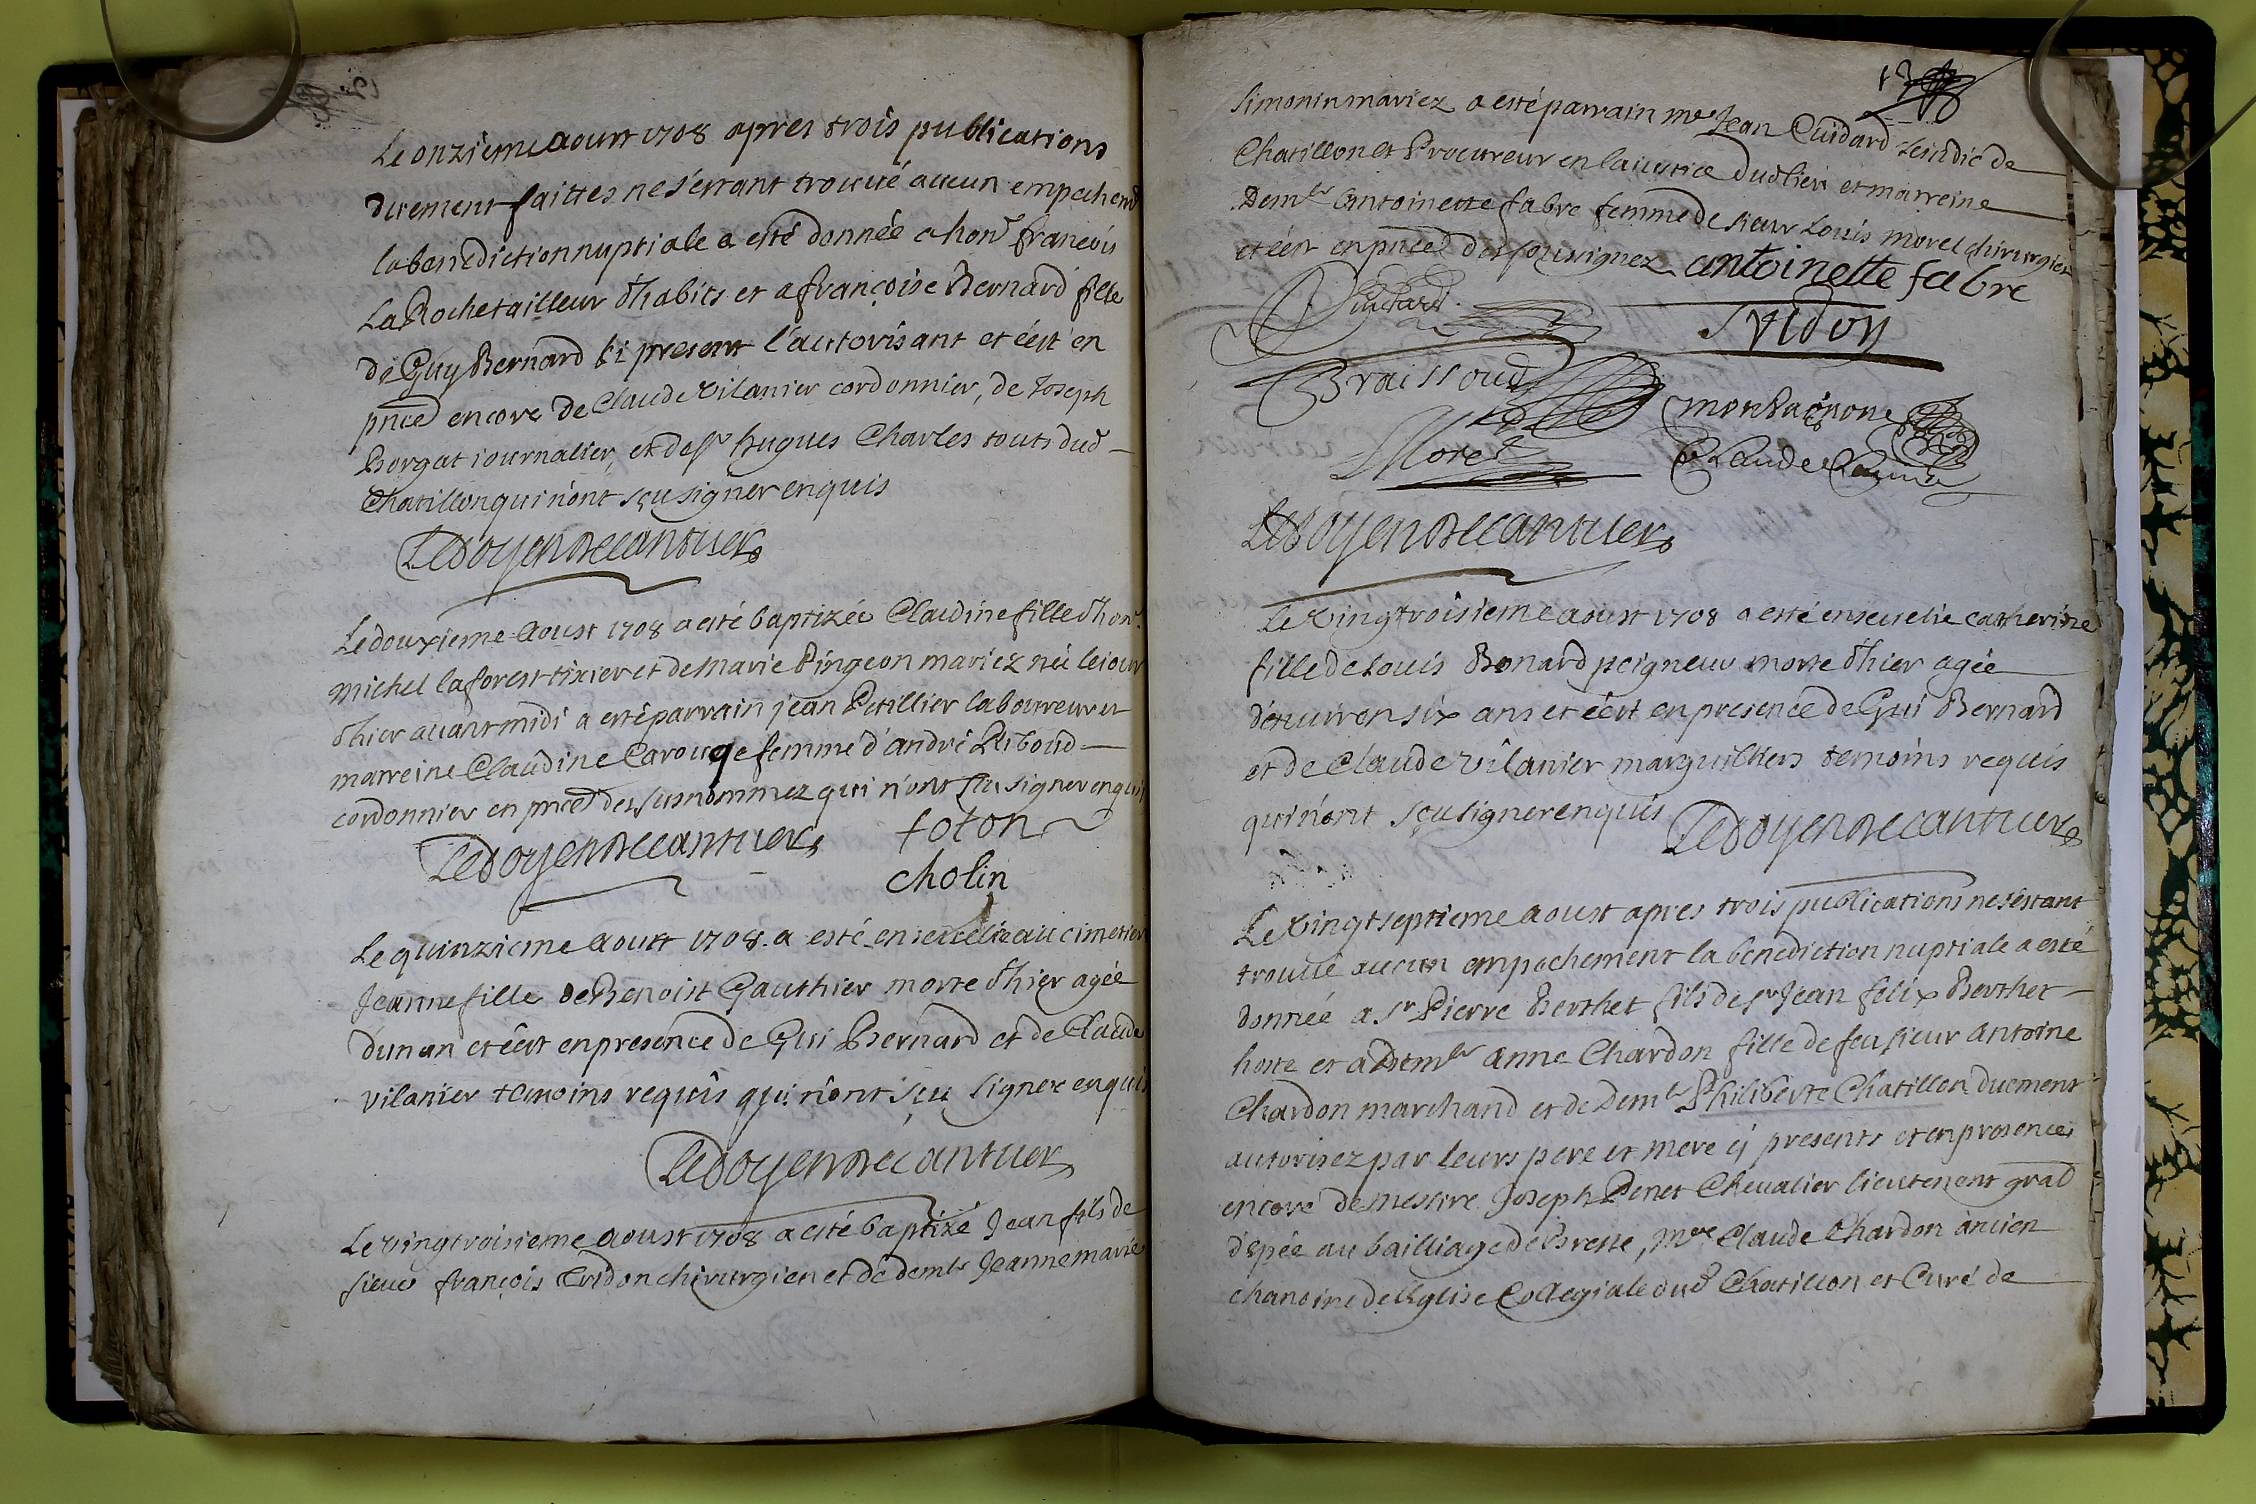 Le onzieme aoust 1708 apres trois publications
duement faittes ne s'estant trouvé aucun empechem
la benediction nuptiale a esté donnée a hon francois
La Roche tailleur d'habits et a françoise Bernard fille
de Guy Bernard si present l'autorisant et éest en
pnce encore de Claude Vilanier cordonnier, de Joseph
Borgat iournalier, et de sr hugues Charles touts dud
Chatillon qui n'ont sçu signer enquis
Ledoyen De Cantuer
Le douxieme Aoust 1708 a esté baptizée Claudine fille d'hon
michel laforest tixier et de Marie Pingeon mariez née le iour
d'hier avant midi a esté parrain jean Petillier laboureur et
marreine Claudine Carouge femme d'andré Riboud
cordonnier en pnce des susnommez qui n'ont sçu signer enquis
Ledoyen De Cantuer foton
cholin
Le quinzieme Aoust 1708 a esté ensevelie au cimetier
Jeanne fille de Benoist Gauthier morte d'hier agée
d'un an et éest en presence de Gui Bernard et de Claude
vilanier temoins requis qui n'ont sçu signer enquis
Ledoyen De Cantuer
Le vingtroisieme aoust 1708 a esté baptizé Jean fils de
sieur françois Tridon chirurgien et de demlle Jeanne marie
simonin mariez a esté parrain me Jean Cuidard Scindic de
Chatillon et Procureur en la iustice dud lieu et marreine
Demlle Antoinette fabre femme de sieur Louis morel chirurgien
et éest en pnce des soussignez antoinette fabre
Tridon
Braissoud
monRagnon
Morel Claude
Ledoyen De Cantuer
Le vingtroisieme aoust 1708 a esté ensevelie catherine
fille de Louis Bonard peigneur morte d'hier agée
d'enuiron six ans et éest en presence de Gui Bernard
et de Claude vilanier marguilliers temoins requis
qui n'ont sçu signer enquis Ledoyen De Cantuer
Le vingtseptieme aoust apres trois publications ne s'estant
trouvé aucun empechement la benediction nuptiale a esté
donnée a sr Pierre Berthet fils de sr Jean felix Berthet
hoste et a Demlle anne Chardon fille de feu sieur Antoine
Chardon marchand et de Demlle Philiberte Chatillon duement
autorisez par leurs pere et mere cy presents et en presence
encore de messire Joseph Penet Chevalier lieutenent gral
d'epée au bailliage de Bresse, mre Claude Chardon ancien
chanoine de l'Eglise Collegiale dud Chatillon et Curé de